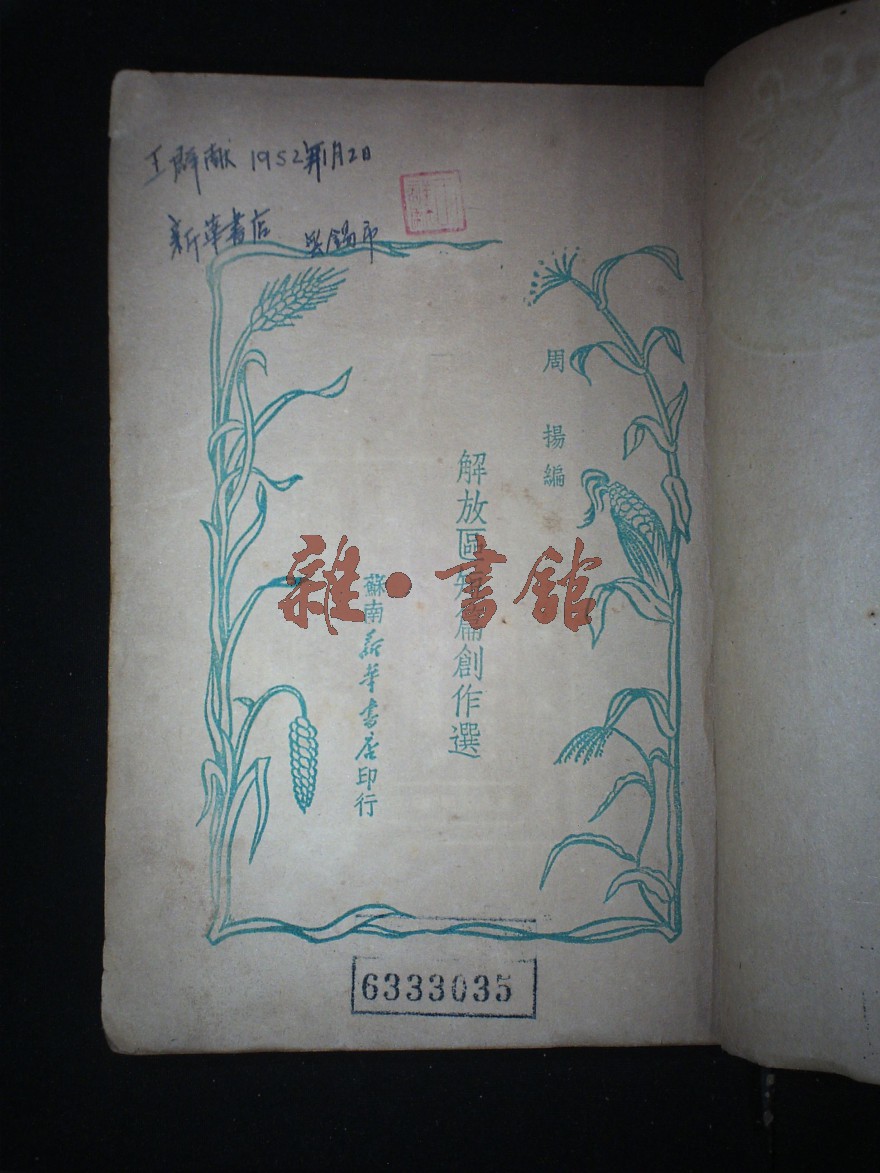 1952年1月2日
新華書店 無錫市
周揚編
解放區短篇創作選
蘇南新華書店印行
雜·書館
6333035